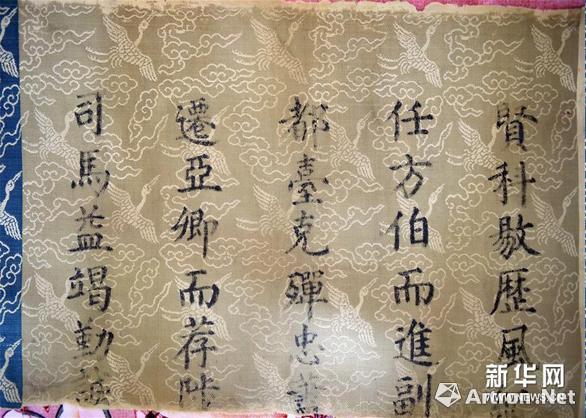 賢科敭歷風
任方伯而進副
都臺克殫忠
遷亞卿而荐陟
司馬益竭勤
新华网
Artron.Net